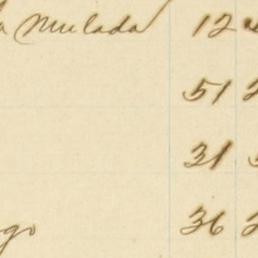 a Mulada 12
51 2
31
go 36 2